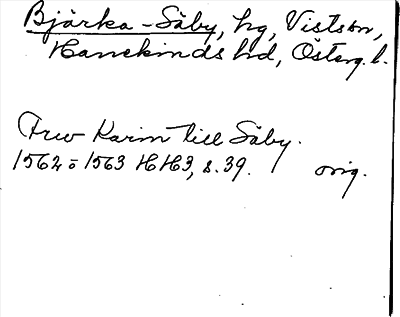 Bjärka-Säby, hg, Vistsn,
Hanekinds hd, Österg. l.
Fru Karin till Säby.
1562 o 1563 HH3, s. 39. orig.